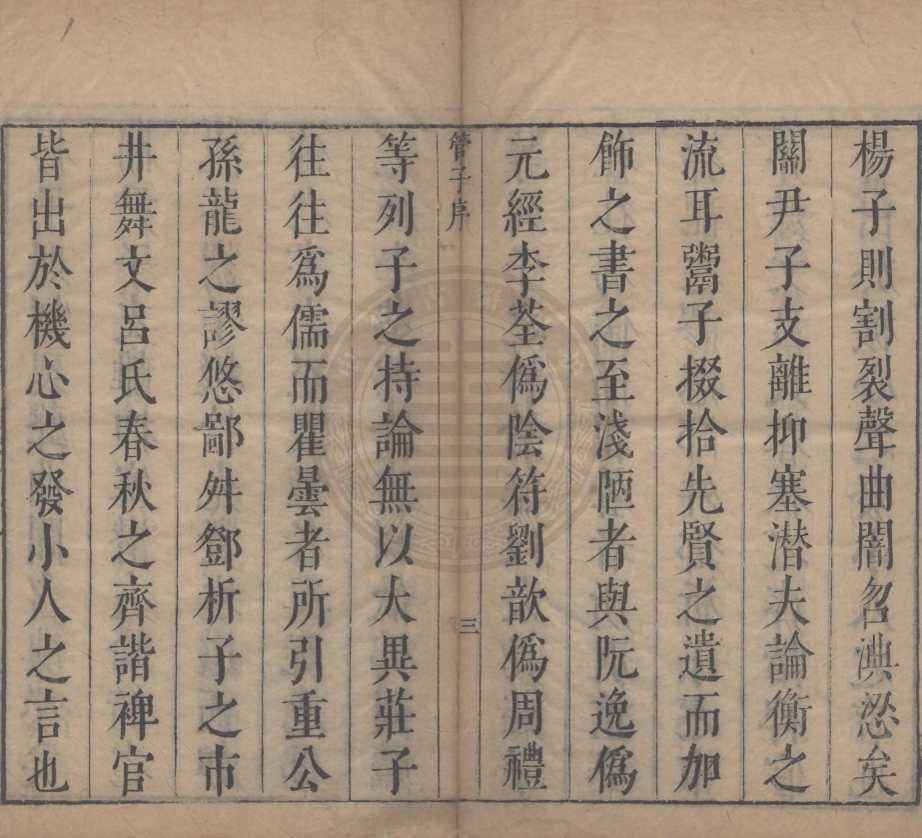 楊子則割裂聲曲闇曶淟涊矣
關尹子支離抑塞潜夫論衡之
流耳鬻子掇拾先賢之遺而加
飾之書之至淺陋者與阮逸僞
元經李荃僞陰符劉歆僞周禮
管子序
三
等列子之持論無以大異莊子
往往爲儒而瞿曇者所引重公
孫龍之謬悠鄙舛鄧析子之市
井舞文呂氏春秋之齊諧稗官
皆出於機心之發小人之言也